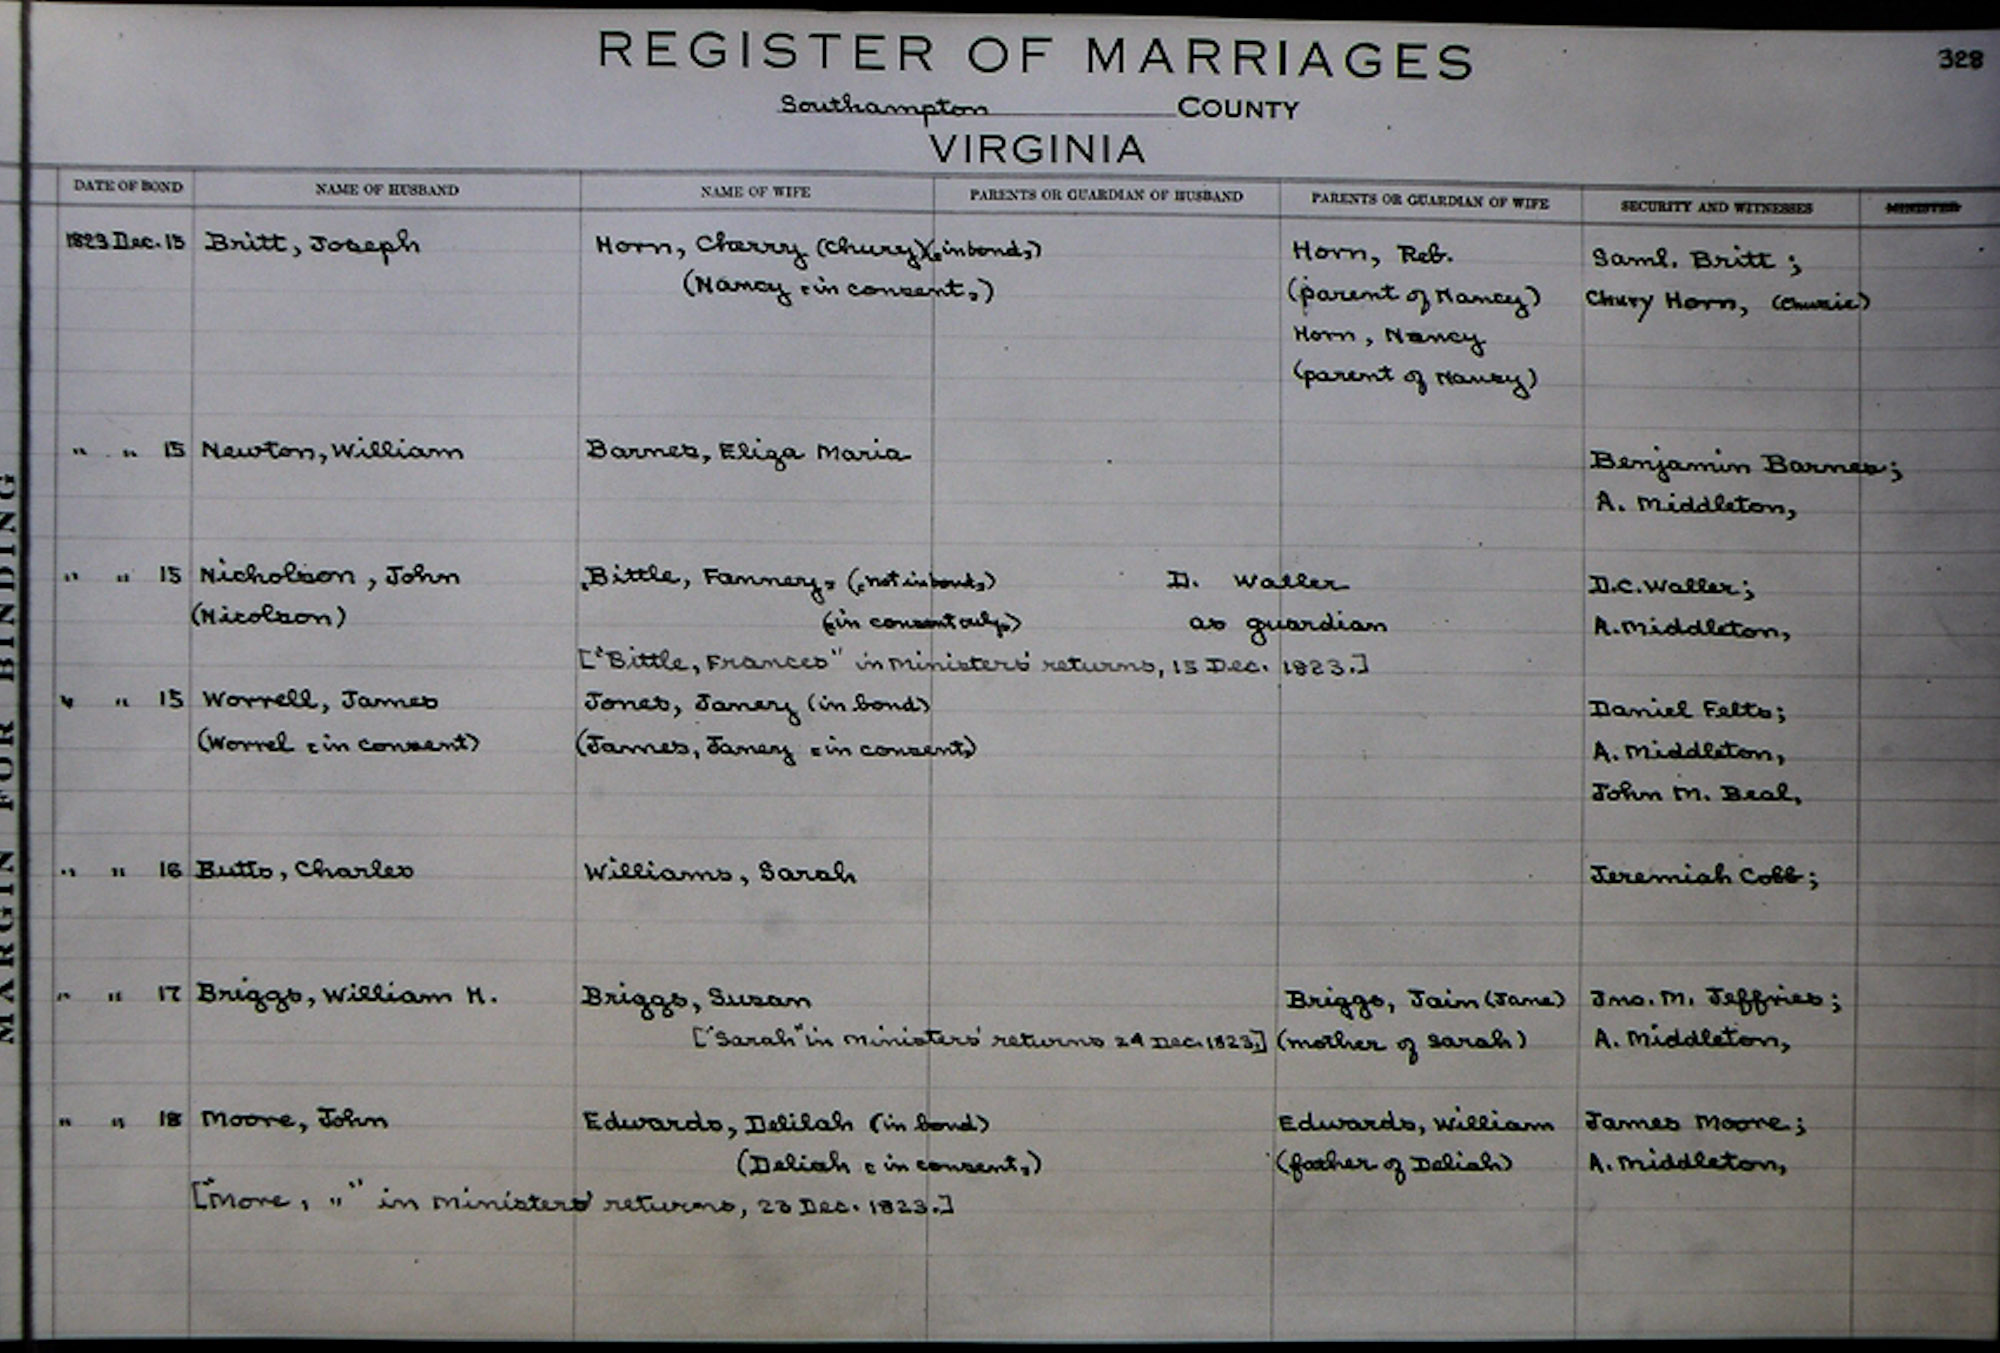 REGISTER OF MARRIAGES
328
Southampton COUNTY
VIRGINIA
DATE OF BOND NAME OF HUSBAND NAME OF WIFE PARENTS OR GUARDIAN OF HUSBAND PARENTS OR GUARDIAN OF WIFE SECURITY AND WITNESSES MINISTER
1823 Dec. 15 Britt, Joseph Horn, Cherry (Chury) („in bond„) Horn, Reb. Saml. Britt ;
(Nancy „in consent„) (parent of Nancy) Chury Horn, (Churie)
Horn, Nancy
(parent of Nancy)
" " 15 Newton, William Barnes, Eliza Maria Benjamin Barnes;
A. Middleton,
" " 15 Nicholson, John „Bittle, Fannery„ („not in bond„) D. Waller D.C. Waller;
(Nicolson) („in consent only„) as guardian A. Middleton,
["Bittle, Frances" in Ministers' returns, 15 Dec. 1823.]
" " 15 Worrell, James Jones, Janery (in bond) Daniel Felts;
(Worrel „in consent) (James, Janery „in consent„) A. Middleton,
John M. Beal,
" " 16 Butts, Charles Williams, Sarah Jeremiah Cobb;
" " 17 Briggs, William H. Briggs, Susan Briggs, Jain (Jane) Jno. M. Jeffries;
["Sarah" in Ministers' returns 24 Dec. 1823.] (mother of Sarah) A. Middleton,
" " 18 Moore, John Edwards, Delilah (in bond) Edwards, William James Moore;
(Deliah „in consent„) (father of Deliah) A. Middleton,
["More, "" in Ministers' returns, 23 Dec. 1823.]
MARGIN FOR BINDING